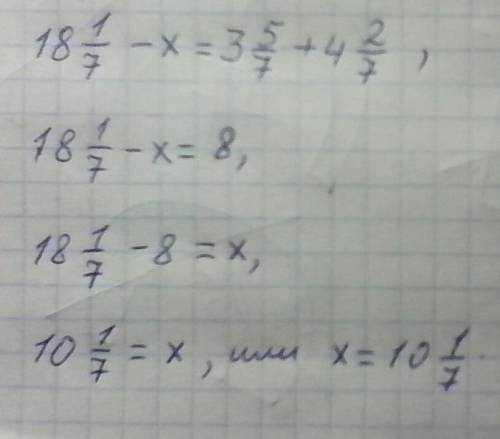 18 1/7 - x = 3 5/7 + 4 2/7 ,
18 1/7 - x = 8,
18 1/7 - 8 = x,
10 1/7 = x , или x = 10 1/7